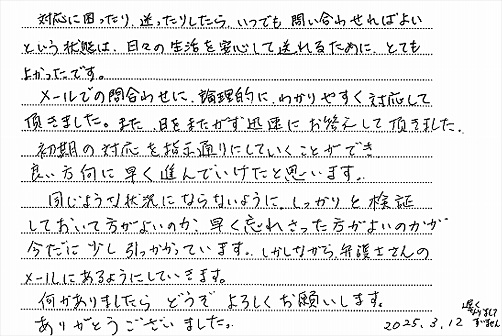 対応に困ったり、迷ったりしたら、いつでも問い合わせればよい
という状態は、日々の生活を安心して送れるために、とても
よかったです。
メールでの問合わせに、論理的に、わかりやすく対応して
頂きました。また、日をまたがず迅速にお答えして頂きました。
初期の対応を指示通りにしていくことができ、
良い方向に早く進んでいけたと思います。
同じような状況にならないように、しっかりと検証
しておいて方がよいのか、早く忘れさった方がよいのかが
今だに少し引っかかっています。しかしながら、弁護士さんの
メールにあるようにしていきます。
何かありましたら、どうぞよろしくお願いします。
ありがとうございました。
2025.3.12
遅く
なりまして
すいません